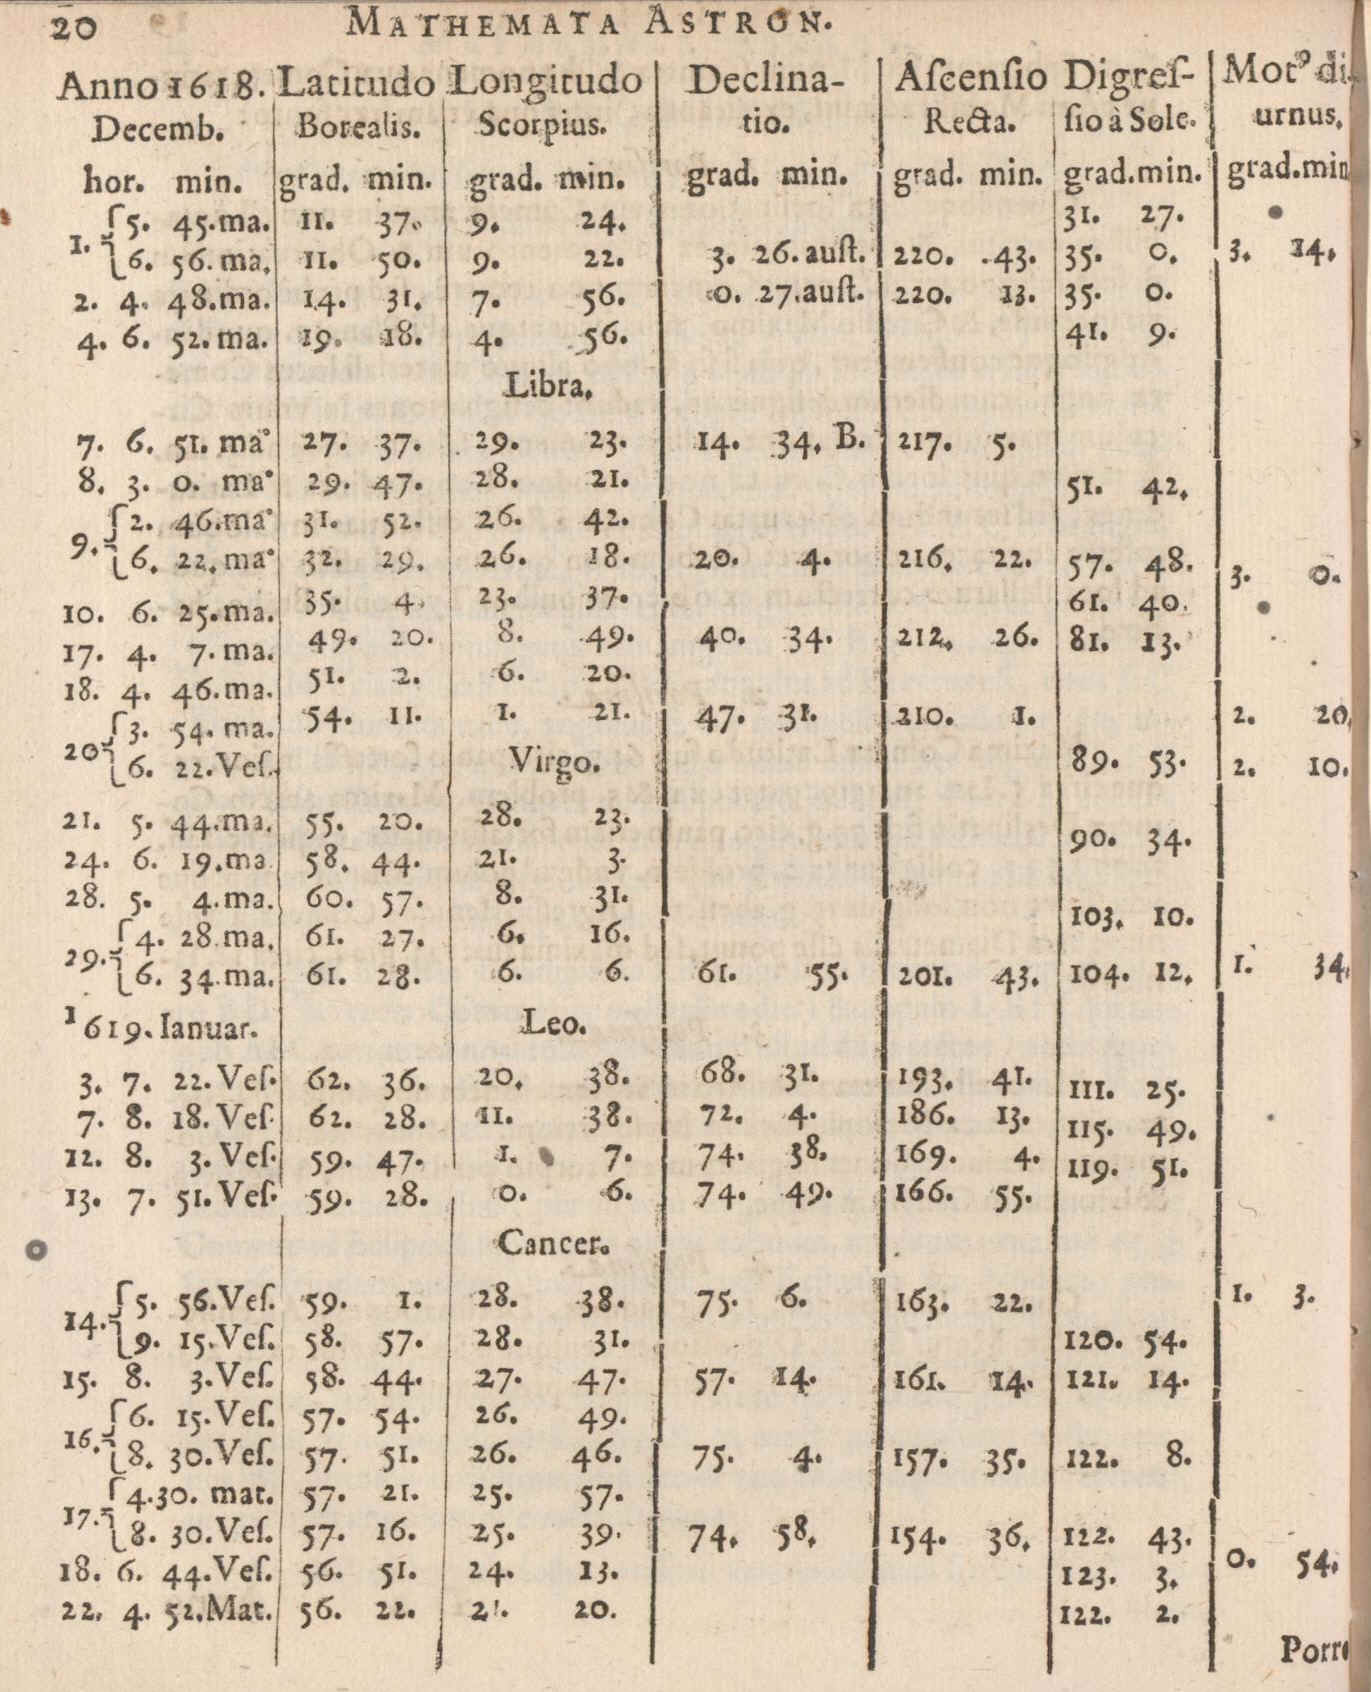 20 MATHEMATA ASTRON.
Anno 1618. Latitudo Longitudo Declina- Aſcenſio Digreſ- Motꝰ di-
Decemb. Borealis. Scorpius. tio. Recta. ſio à Sole. urnus.
hor. min. grad. min. grad. min. grad. min. grad. min. grad. min. grad. min
1. 5. 45. ma. 11. 37. 9. 24. 31. 27.
6. 56. ma. 11. 50. 9. 22. 3. 26. auſt. 220. 43. 35. 0. 3. 14.
2. 4. 48. ma. 14. 31. 7. 56. 0. 27. auſt. 220. 13. 35. 0.
4. 6. 52. ma. 19. 18. 4. 56. 41. 9.
Libra.
7. 6. 51. ma. 27. 37. 29. 23. 14. 34. B. 217. 5.
8. 3. 0. ma. 29. 47. 28. 21. 51. 42.
9. 2. 46. ma. 31. 52. 26. 42.
6. 22. ma. 32. 29. 26. 18. 20. 4. 216. 22. 57. 48. 3. 0.
10. 6. 25. ma. 35. 4. 23. 37. 61. 40.
17. 4. 7. ma. 49. 20. 8. 49. 40. 34. 212. 26. 81. 13.
18. 4. 46. ma. 51. 2. 6. 20.
20. 3. 54. ma. 54. 11. 1. 21. 47. 31. 210. 1. 2. 20.
6. 22. Veſ. Virgo. 89. 53. 2. 10.
21. 5. 44. ma. 55. 20. 28. 23. 90. 34.
24. 6. 19. ma 58. 44. 21. 3.
28. 5. 4. ma. 60. 57. 8. 31. 103. 10.
29. 4. 28. ma. 61. 27. 6. 16.
6. 34. ma. 61. 28. 6. 6. 61. 55. 201. 43. 104. 12. 1. 34.
1619. Ianuar. Leo.
3. 7. 22. Veſ. 62. 36. 20. 38. 68. 31. 193. 41. 111. 25.
7. 8. 18. Veſ. 62. 28. 11. 38. 72. 4. 186. 13. 115. 49.
12. 8. 3. Veſ. 59. 47. 1. 7. 74. 38. 169. 4. 119. 51.
13. 7. 51. Veſ. 59. 28. 0. 6. 74. 49. 166. 55.
Cancer.
14. 5. 56. Veſ. 59. 1. 28. 38. 75. 6. 163. 22. 1. 3.
9. 15. Veſ. 58. 57. 28. 31. 120. 54.
15. 8. 3. Veſ. 58. 44. 27. 47. 57. 14. 161. 14. 121. 14.
16. 6. 15. Veſ. 57. 54. 26. 49.
8. 30. Veſ. 57. 51. 26. 46. 75. 4. 157. 35. 122. 8.
17. 4. 30. mat. 57. 21. 25. 57.
8. 30. Veſ. 57. 16. 25. 39. 74. 58. 154. 36. 122. 43. 0. 54.
18. 6. 44. Veſ. 56. 51. 24. 13. 123. 3.
22. 4. 52. Mat. 56. 22. 21. 20. 122. 2.